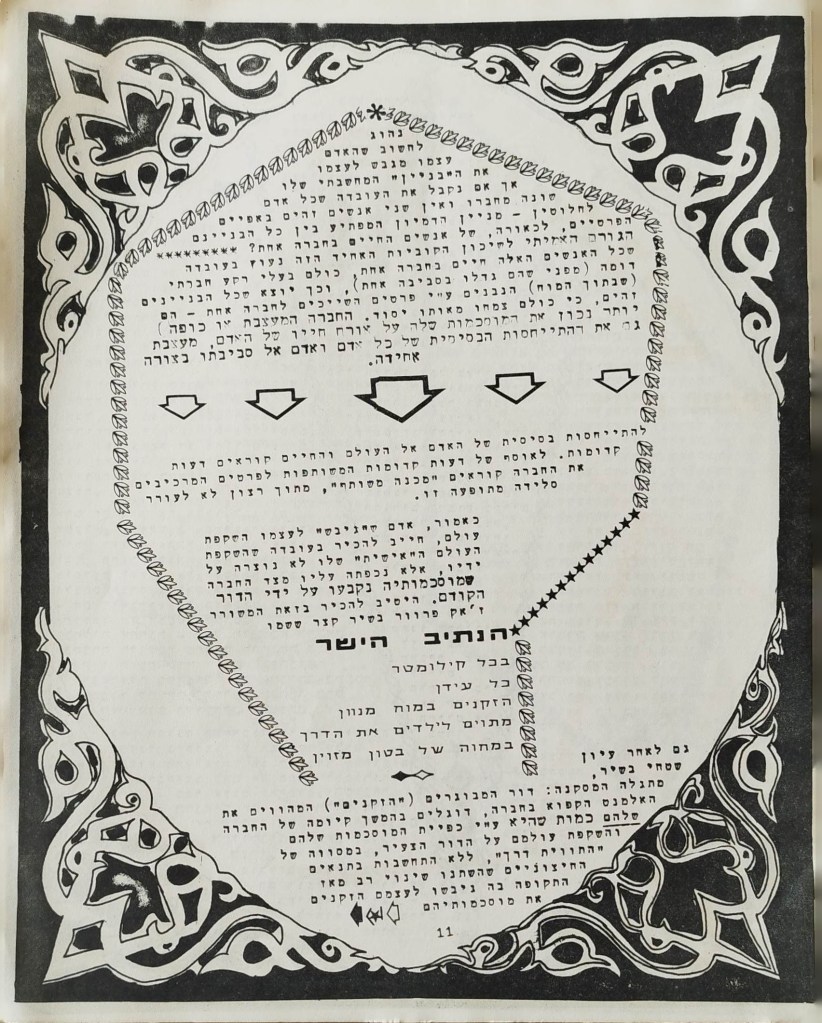 נהוג
לחשוב שהאדם
עצמו מגבש לעצמו
את ה"בניין" המחשבתי שלו
אך אם נקבל את העובדה שכל אדם
שונה מחברו ואין שני אנשים זהים באפיים
לחלוטין - מניין הדמיון המפתיע בין כל הבניינם
הפרטיים, לכאורה, של אנשים החיים בחברה אחת? *********
הגורם האמיתי לשיכון הקוביות האחיד הזה נעוץ בעובדה
שכל האנשים האלה חיים בחברה אחת, כולם בעלי רקע חברתי
דומה (מפני שהם גדלו בסביבה אחת), וכך יוצא שכל הבניינים
(שבתוך המוח) הנבנים ע"י פרטים השייכים לחברה אחת - הם
זהים, כי כולם צמחו מאותו יסוד. החברה המעצבת או כופה (
יותר נכון את המוסכמות שלה על אורח חייו של האדם, מעצבת
גם את ההתייחסות הבסיסית של כל אדם ואדם אל סביבתו בצורה
אחידה.
להתייחסות בסיסית של האדם אל העולם והחיים קוראים דעות
קדומות. לאוסף של דעות קדומות המשותפות לפרטים המרכיבים
את החברה קוראים "מכנה משותף", מתוך רצון לא לעורר
סלידה מתופעה זו.
כאמור, אדם ש"גיבש" לעצמו השקפת
עולם, חייב להכיר בעובדה שהשקפת
העולם ה"אישית" שלו לא נוצרה על
ידיו, אלא נכפתה עליו מצד החברה
שמוסכמותיה נקבעו על ידי הדור
הקודם. היטיב להכיר בזאת המשורר
ז'אק פרוור בשיר קצר ששמו
הנתיב הישר
בכל קילומטר
כל עידן
הזקנים במוח מנוון
מתווים לילדים את הדרך
במחוה של בטון מזוין
גם לאחר עיון
שטחי בשיר,
מתגלה המסקנה: דור המבוגרים ("הזקנים") המהווים את
האלמנט הקפוא בחברה, דוגלים בהמשך קיומה של החברה
שלהם כמות שהיא ע"י כפיית המוסכמות שלהם
והשקפת עולמם על הדור הצעיר, במסווה של
"התווית דרך", ללא התחשבות בתנאים
החיצוניים שהשתנו שינוי רב מאז
התקופה בה גיבשו לעצמם הזקנים
את מוסכמותיהם
11